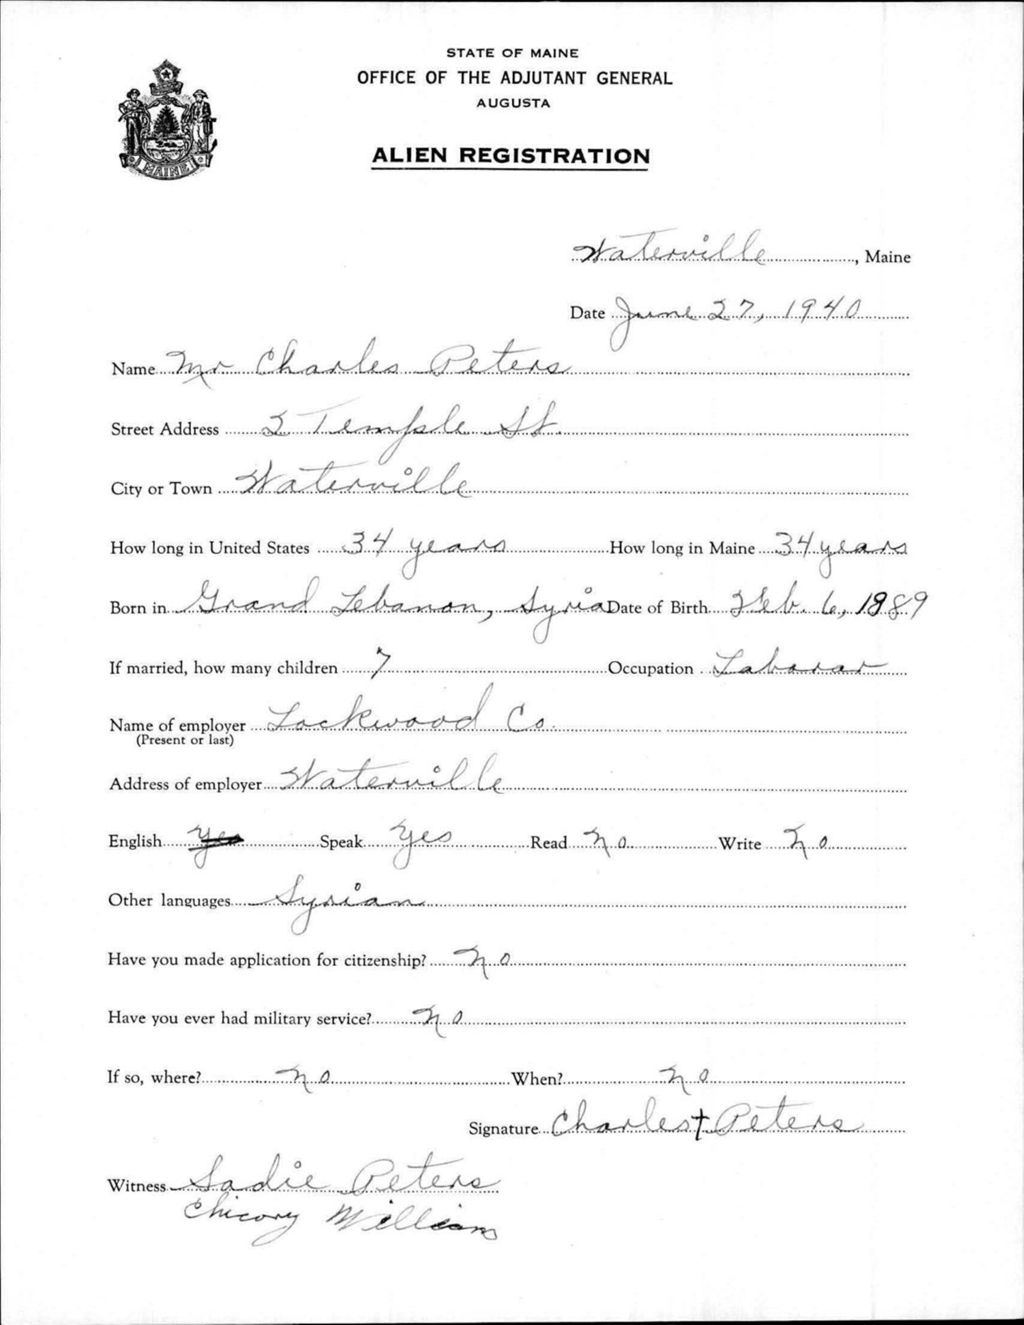 STATE OF MAINE
OFFICE OF THE ADJUTANT GENERAL
AUGUSTA
ALIEN REGISTRATION
MAINE
Waterville, Maine
Date June 27, 1940
Name Mr Charles Peters
Street Address 2 Temple St.
City or Town Waterville
How long in United States 34 years How long in Maine 34 years
Born in Grand Lebanon, Syria Date of Birth Feb. 6, 1889
If married, how many children 7 Occupation Labarar
Name of employer Lockwood Co.
(Present or last)
Address of employer Waterville
English Yes Speak Yes Read No Write No
Other languages Syrian
Have you made application for citizenship? No
Have you ever had military service? No
If so, where? No When? No
Signature Charles † Peters
Witness Sadie Peters
Chicory William